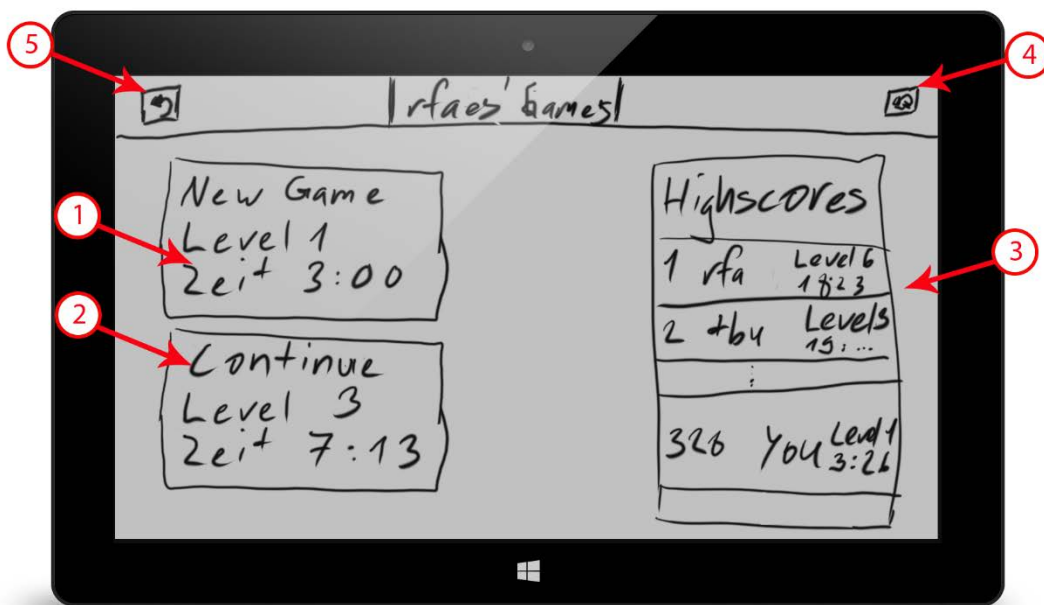 5
4
rfaes' Games
New Game
Level 1
Zeit 3:00
1
Continue
Level 3
Zeit 7:13
2
Highscores
1 rfa Level 6
18:23
2 tbu Level 5
19:...
⋮
326 You Level 1
3:26
3